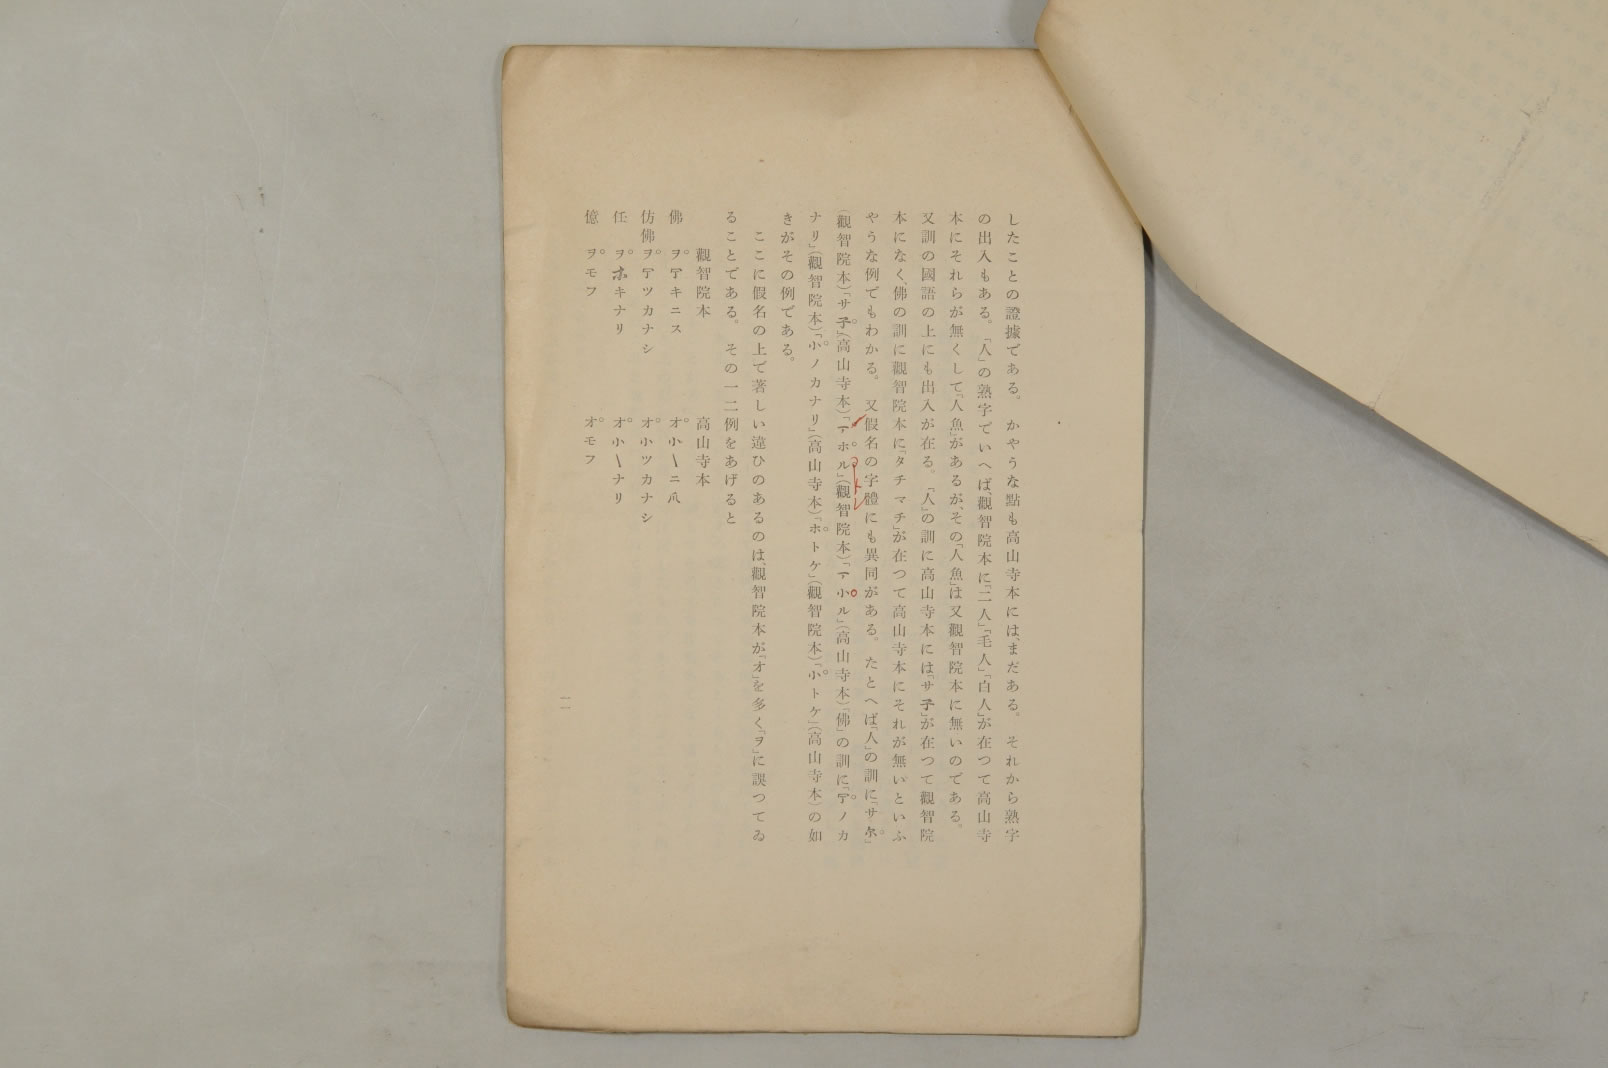 したことの證據である。かやうな點も高山寺本には、まだある。それから熟字
の出入もある。「人」の熟字でいへば、觀智院本に「二人」「毛人」「白人」が在つて高山寺
本にそれらが無くして「人魚」があるが、その「人魚」は又觀智院本に無いのである。
又訓の國語の上にも出入が在る。「人」の訓に高山寺本には「サ子」が在つて觀智院
本になく、佛の訓に觀智院本に「タチマチ」が在つて高山寺本にそれが無いといふ
やうな例でもわかる。又假名の字體にも異同がある。たとへば「人」の訓に「サ尓」
(觀智院本)「サ子」(高山寺本)「アホル」(觀智院本)「ア小ル」(高山寺本)「佛」の訓に「ノカ
ナリ」(觀智院本)「小ノカナリ」(高山寺本)「ホトケ」(觀智院本)「小トケ」(高山寺本)の如
きがその例である。
ここに假名の上で著しい違ひのあるのは、觀智院本が「オ」を多く「ヲ」に誤つてゐ
ることである。その一二例をあげると
觀智院本 高山寺本
佛 ヲキニス オ小〵ニ爪
仿佛 ヲツカナシ オ小ツカナシ
任 ヲホキナリ オ小〵ナリ
億 ヲモフ オモフ
一一